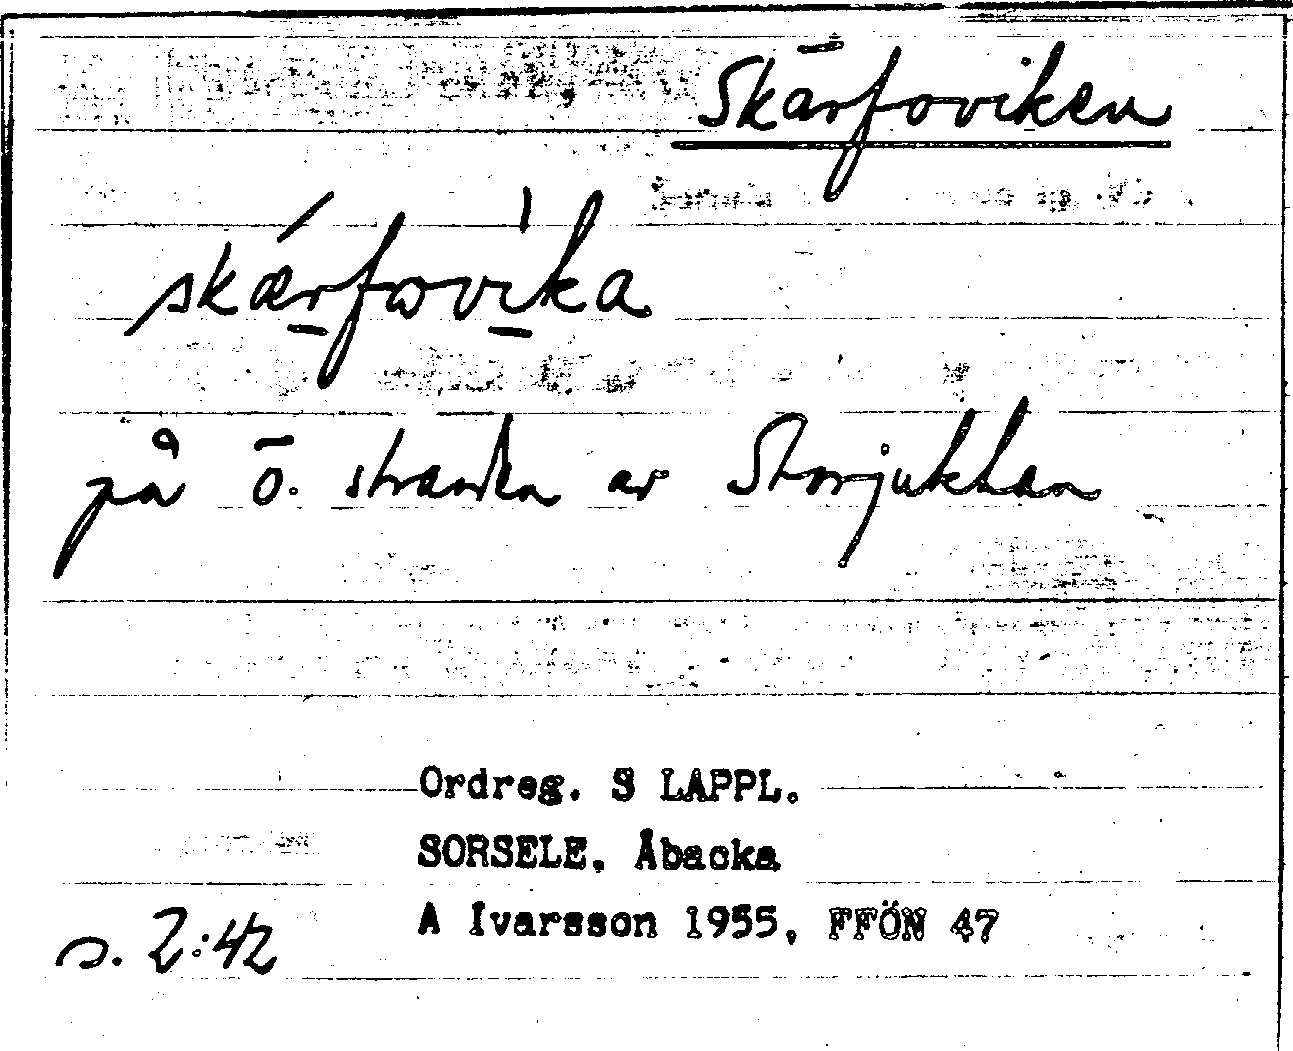 Skärfoviken
skǽrfωvìka
på ö. stranden av Storjuktan
Ordreg. S LAPPL.
SORSELE, Åbacka
A Ivarsson 1955, FFÖN 47
s. 2:42